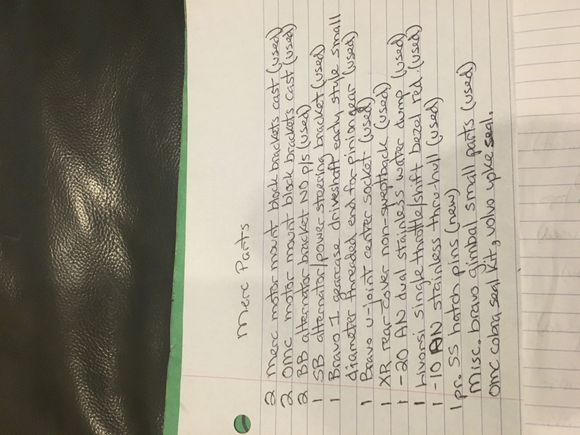 Merc Parts
2 Merc motor mount block brackets cast (used)
2 OMC motor mount block brackets cast (used)
2 BB alternator bracket NO p/s (used)
1 SB alternator/power steering bracket (used)
1 Bravo I gearcase driveshaft early style small
diameter threaded end for pinion gear (used)
1 Bravo u-joint center socket (used)
1 XR rear cover non-sweptback (used)
1 -20 AN dual stainless water dump (used)
1 Livorsi single throttle/shift bezel red (used)
1 -10 AN stainless thru-hull (used)
1 pr. SS hatch pins (new)
Misc. bravo gimbal small parts (used)
OMC cobra seal kit, volvo yoke seal.